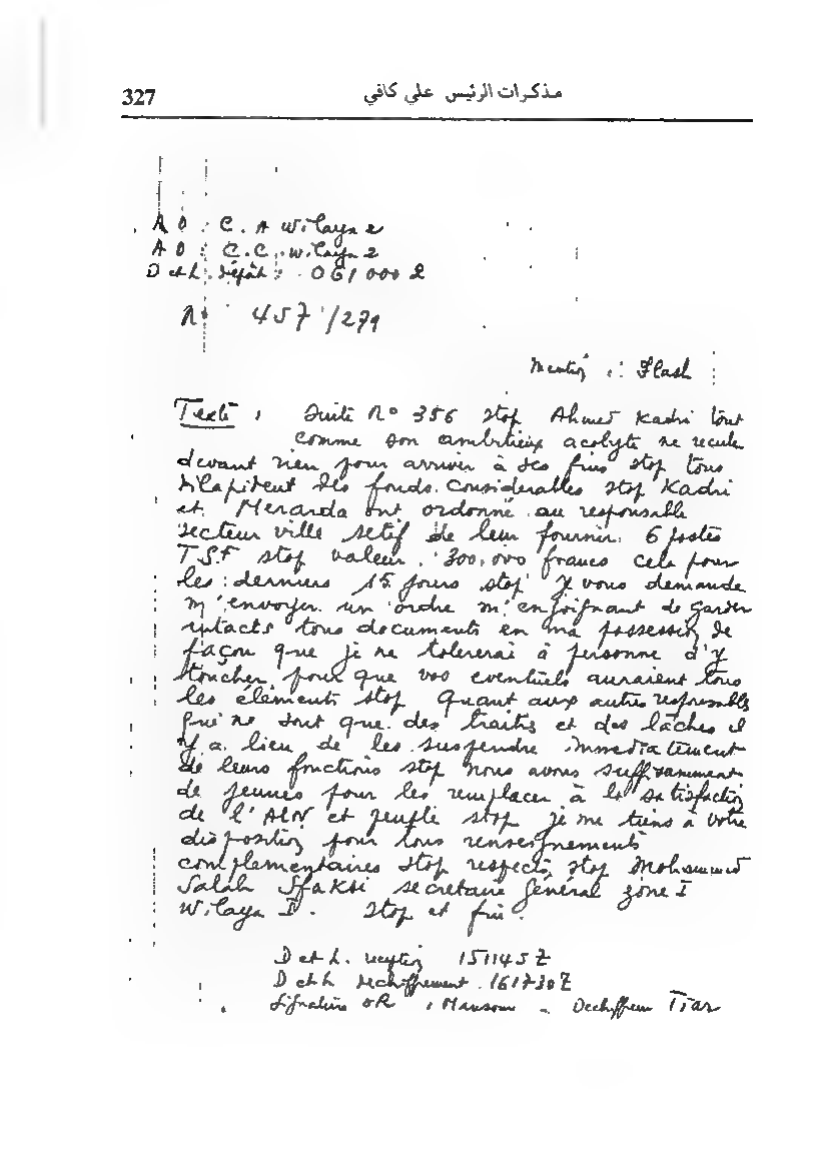 327
مذكرات الرئيس علي كافي
A O : C. A Wilaya 2
A O : C.C. Wilaya 2
D et h. dépôt : 061000 Z
N° 457 /279
Mention : Flash
Texte : Suite N° 356 stop Ahmed Kadri tout
comme son ambitieux acolyte ne recule
devant rien pour arriver à ses fins stop tous
dilapident des fonds considerables stop Kadri
et Meranda ont ordonné au responsable
secteur ville setif de leur fournir 6 postes
T.S.F stop valeur 300.000 francs cela pour
les derniers 15 jours stop Je vous demande
m'envoyer un ordre m'enjoignant de garder
intacts tous documents en ma possession de
façon que je ne tolererai à personne d'y
toucher pour que vos eventuels auraient tous
les éléments stop Quant aux autres responsables
qui ne sont que des traitres et des lâches il
y a lieu de les suspendre immediatement
de leurs fonctions stop nous avons suffisamment
de jeunes pour les remplacer à la satisfaction
de l'ALN et peuple stop je me tiens à votre
disposition pour tous renseignements
complementaires stop respects stop Mohammed
Salah Sfaksi secretaire général zone I
Wilaya I. Stop et fin.
D et h. reception 151145 Z
D et h dechiffrement 161730Z
Signature OR : Mansour - Dechiffreur Tiar